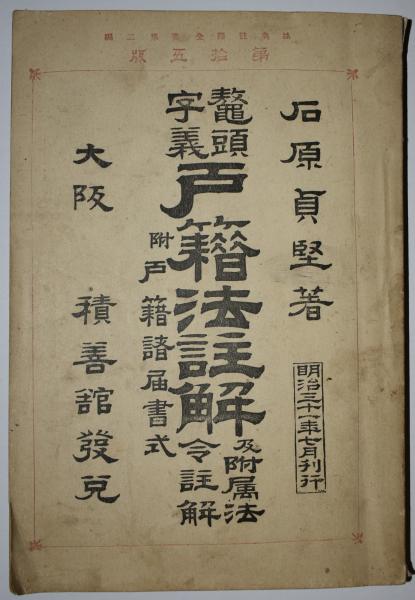 第拾五版
石原貞堅著
明治三十一年七月刊行
鼇頭
字義
戸籍法註解
及附属法
令註解
附戸籍諸届書式
大阪 積善舘發兌